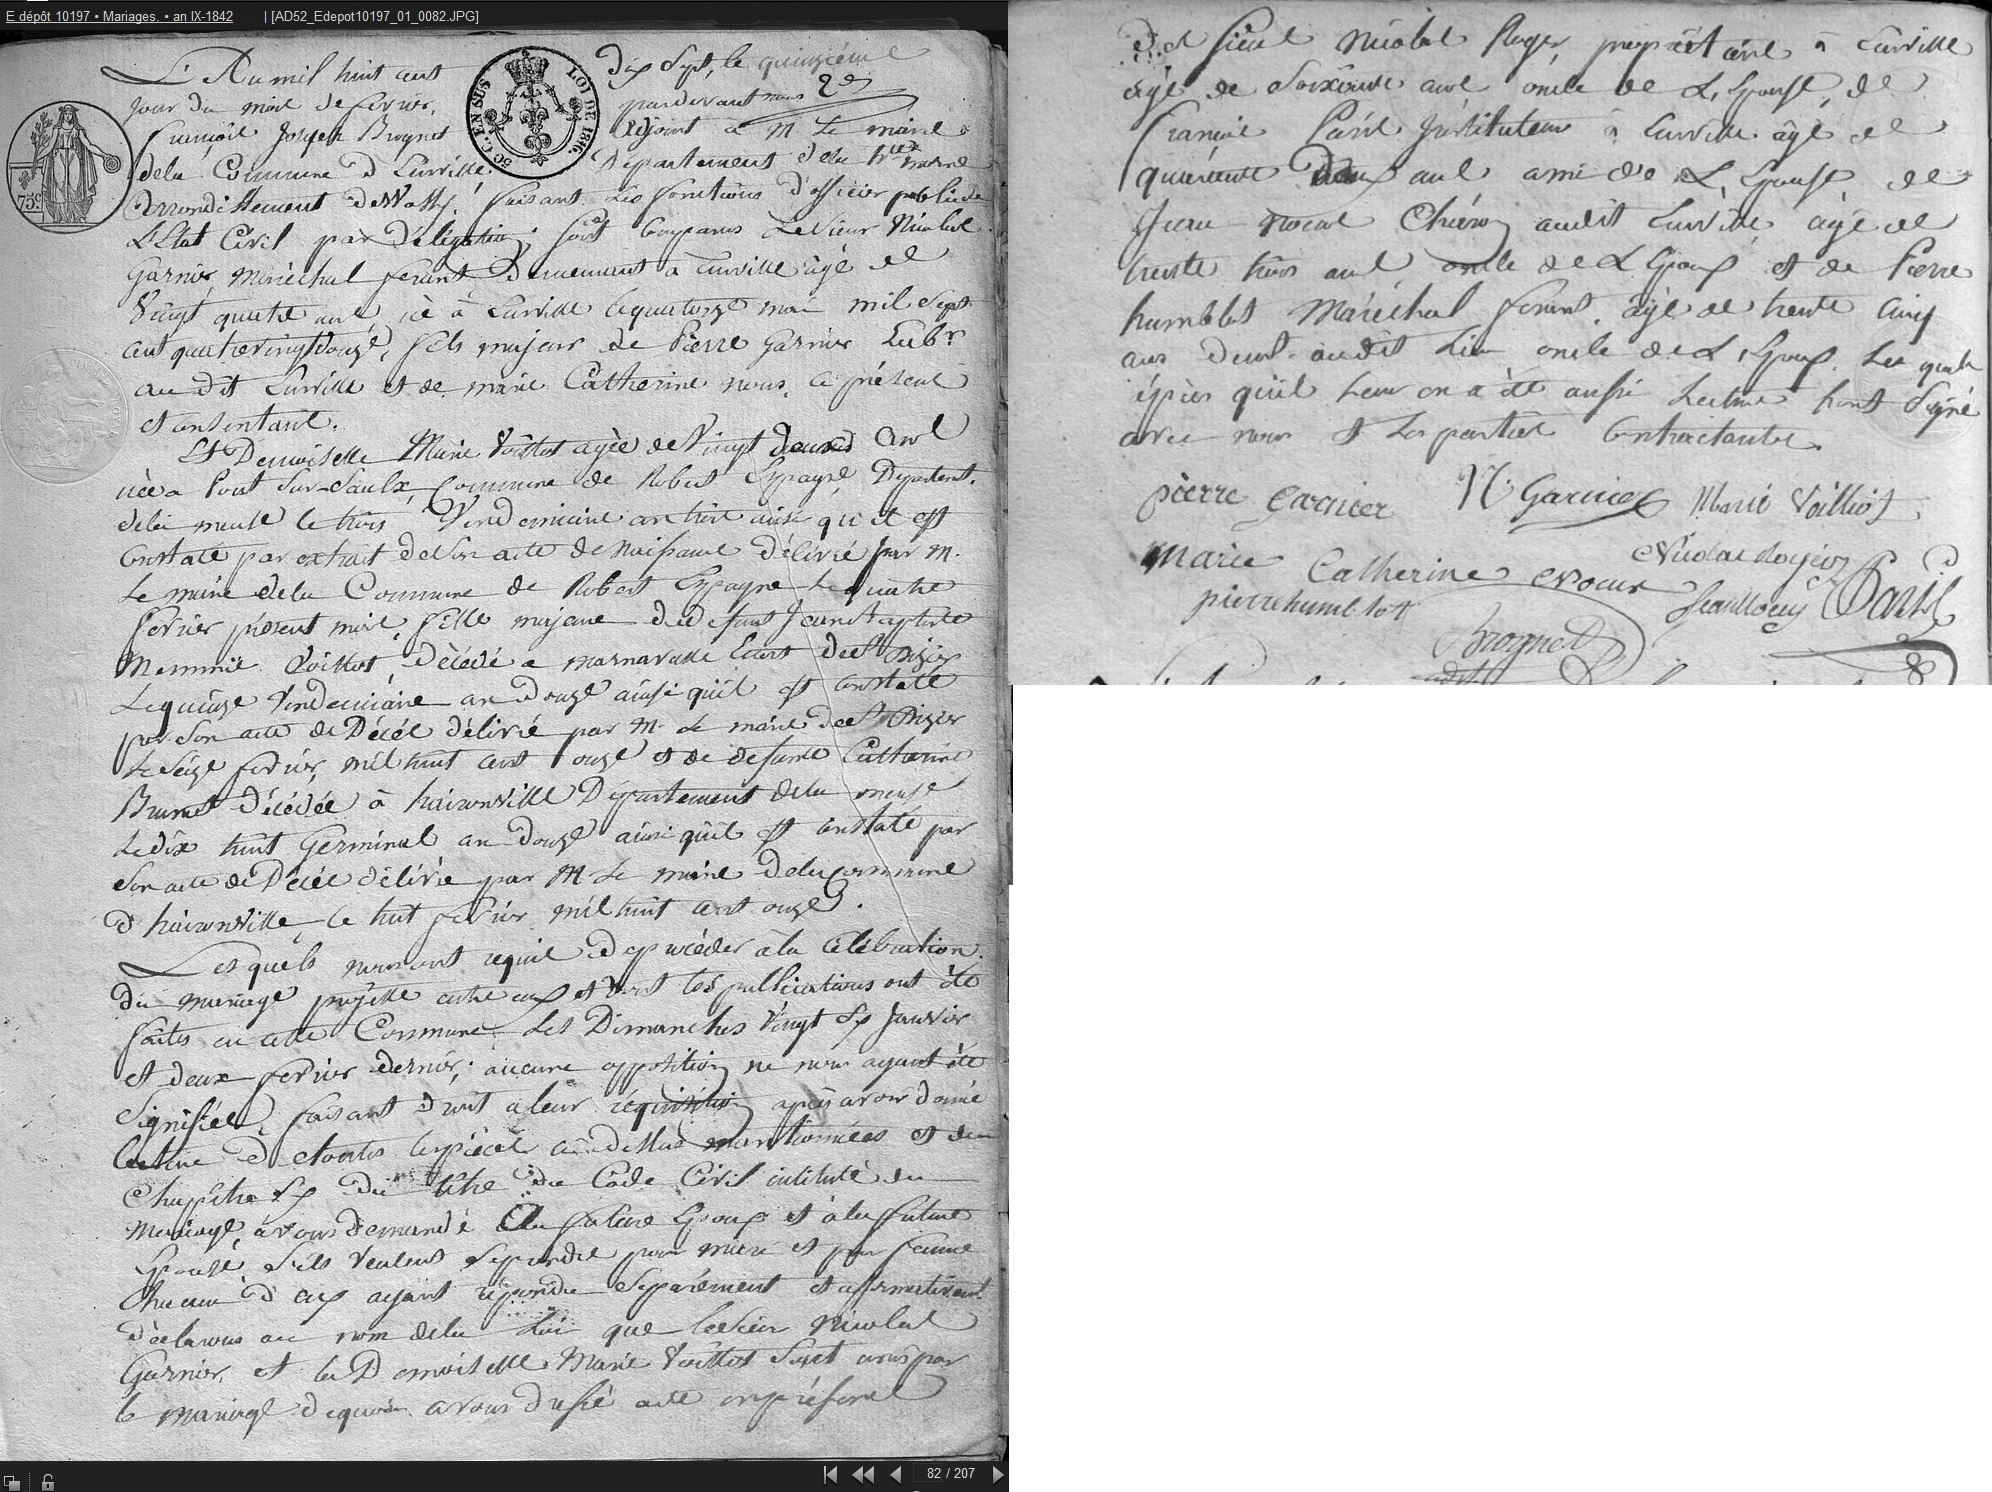 E dépôt 10197 • Mariages. • an IX-1842 | [AD52_Edepot10197_01_0082.JPG]
L'An mil huit cent dix Sept, le quinzième
jour du mois de fevrier, pardevant nous
françois Joseph Brognet adjoint a M. Le maire
dela Commune d Eurville, Département dela hte marne
arrondissement de Vassy, faisant les fonctions d'officier public de
L'Etat Civil par délégation; sont Comparus Le Sieur Nicolas
Garnier, Maréchal ferant, demeurant à Eurville âgé de
Vingt quatre ans, né à Eurville le quatorze mai mil Sept
cent quatrevingt douze, fils majeur de Pierre Garnier Labr
au dit Eurville et de marie Catherine nous, ci présent
et consentant.
Et Demoiselle Marie Voillot agée de Vingt deux ans
née a Pont Sur-Saulx, Commune de Robert Espagne, Département
dela meuse le trois Vendemiaire an huit ainsi qu'il est
constaté par extrait de son acte de naissance délivré par M.
Le maire dela Commune de Robert Espagne le quatre
fevrier présent mois, fille majeure de defunt Jean Baptiste
Memmie Voillot, décédé a marnaval Ecart de St Dizier
Le quinze Vendemiaire an douze ainsi qu'il est constaté
par son acte de Décès délivré par M. Le maire de St Dizier
Le Seize fevrier, mil huit cent onze et de defunte Catherine
Brunet décédée à haironville Département dela meuse
Le dix huit Germinal an douze ainsi qu'il est constaté par
son acte de Décès délivré par M. Le maire dela commune
d'haironville, le huit fevrier mil huit cent onze.
Lesquels nous ont requis de procéder à la célébration
du mariage projetté entre eux et dont les publications ont été
faites en cette Commune les Dimanches Vingt Six Janvier
et deux fevrier dernier; aucune opposition ne nous ayant été
Signifiée, faisant droit a leur réquisition après avoir donné
lecture de toutes les pièces ci dessus mentionnées et du
Chapitre Six du titre du Code Civil intitulé du
Mariage, avons demandé au futur Epoux et à la future
Epouse, s'ils veulent se prendre pour mari et pour femme
Chacun d'eux ayant répondu Séparément et affirmativement
déclarons au nom dela Loi que le Sieur Nicolas
Garnier, et la Demoiselle Marie Voillot Sont unis par
le mariage de quoi avons dressé acte en présence
du Sieur Nicolas Roger, propriétaire à Eurville
âgé de Soixante ans oncle de L'Epouse, de
françois Paris Instituteur à Eurville âgé de
quarante deux ans ami de L'Epouse, de
Jean nocus Chéron audit Eurville, âgé de
trente trois ans oncle de L'Epoux et de Pierre
humblot Maréchal ferant, âgé de trente Cinq
ans demt audit Lieu oncle de L'Epoux. Les quels
après qu'il leur en a été aussi Lecture l'ont Signé
avec nous et Les parties Contractantes.
pierre Garnier N. Garnier Marie Voilliot
Marie Catherine nocus Nicolas Rogier
pierre humblot Jean nocus Paris
Brognet
adjt
75c.
50 C. EN SUS
LOI DE 1816.
82 / 207